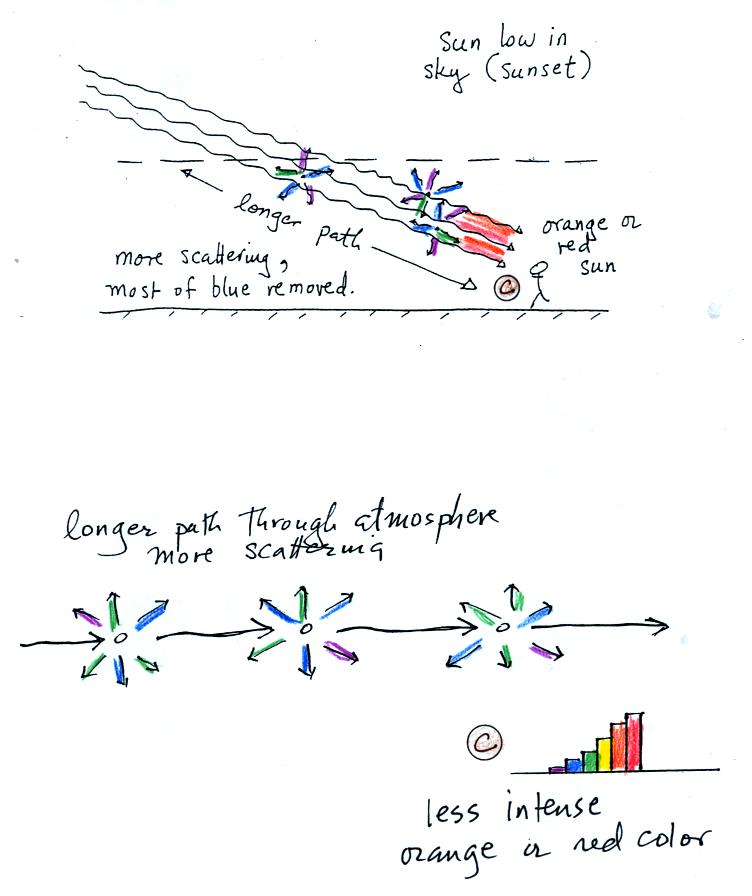 Sun low in
sky (sunset)
longer path
orange or
red
sun
more scattering,
most of blue removed.
C
longer path through atmosphere
more scattering
C
less intense
orange or red color